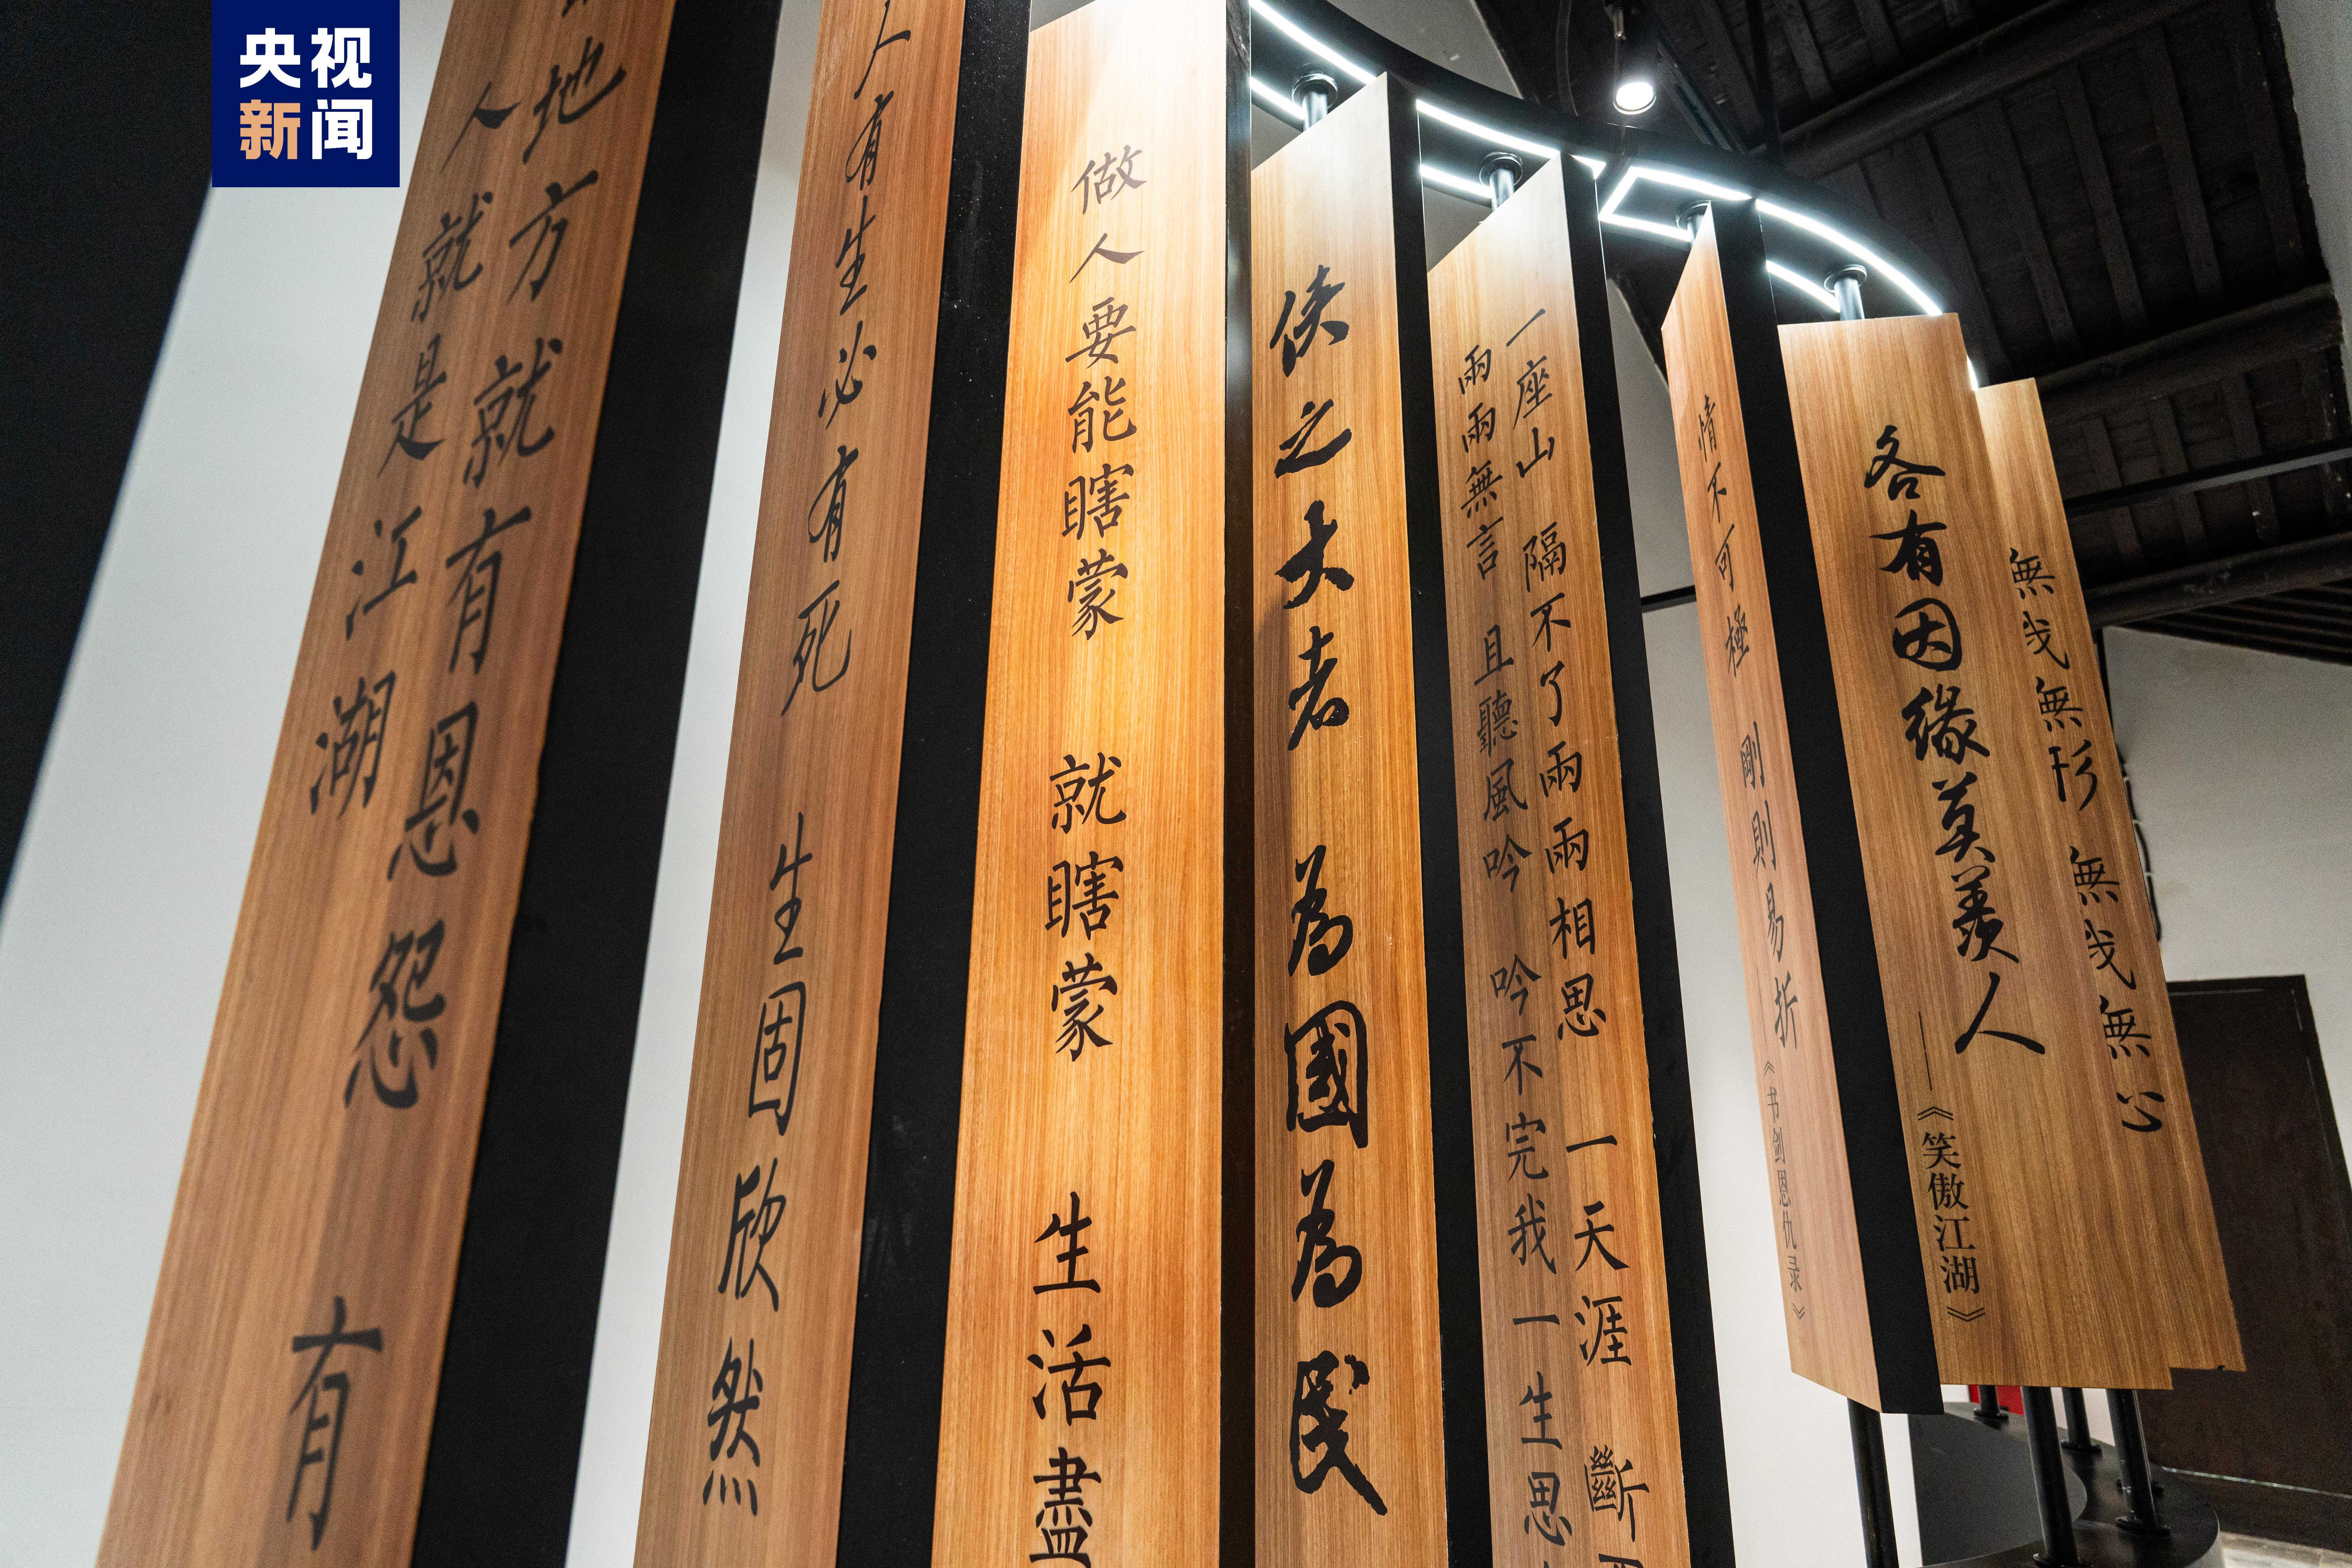 央视
新闻
地方就有恩怨 有
人就是江湖
人有生必有死 生固欣然
做人要能瞎蒙 就瞎蒙 生活盡
侠之大者 為國為民
一座山 隔不了兩兩相思 一天涯 斷
兩兩無言 且聽風吟 吟不完我一生思
情不可極 剛則易折
《书剑恩仇录》
各有因缘莫羡人
——《笑傲江湖》
無我無形 無我無心